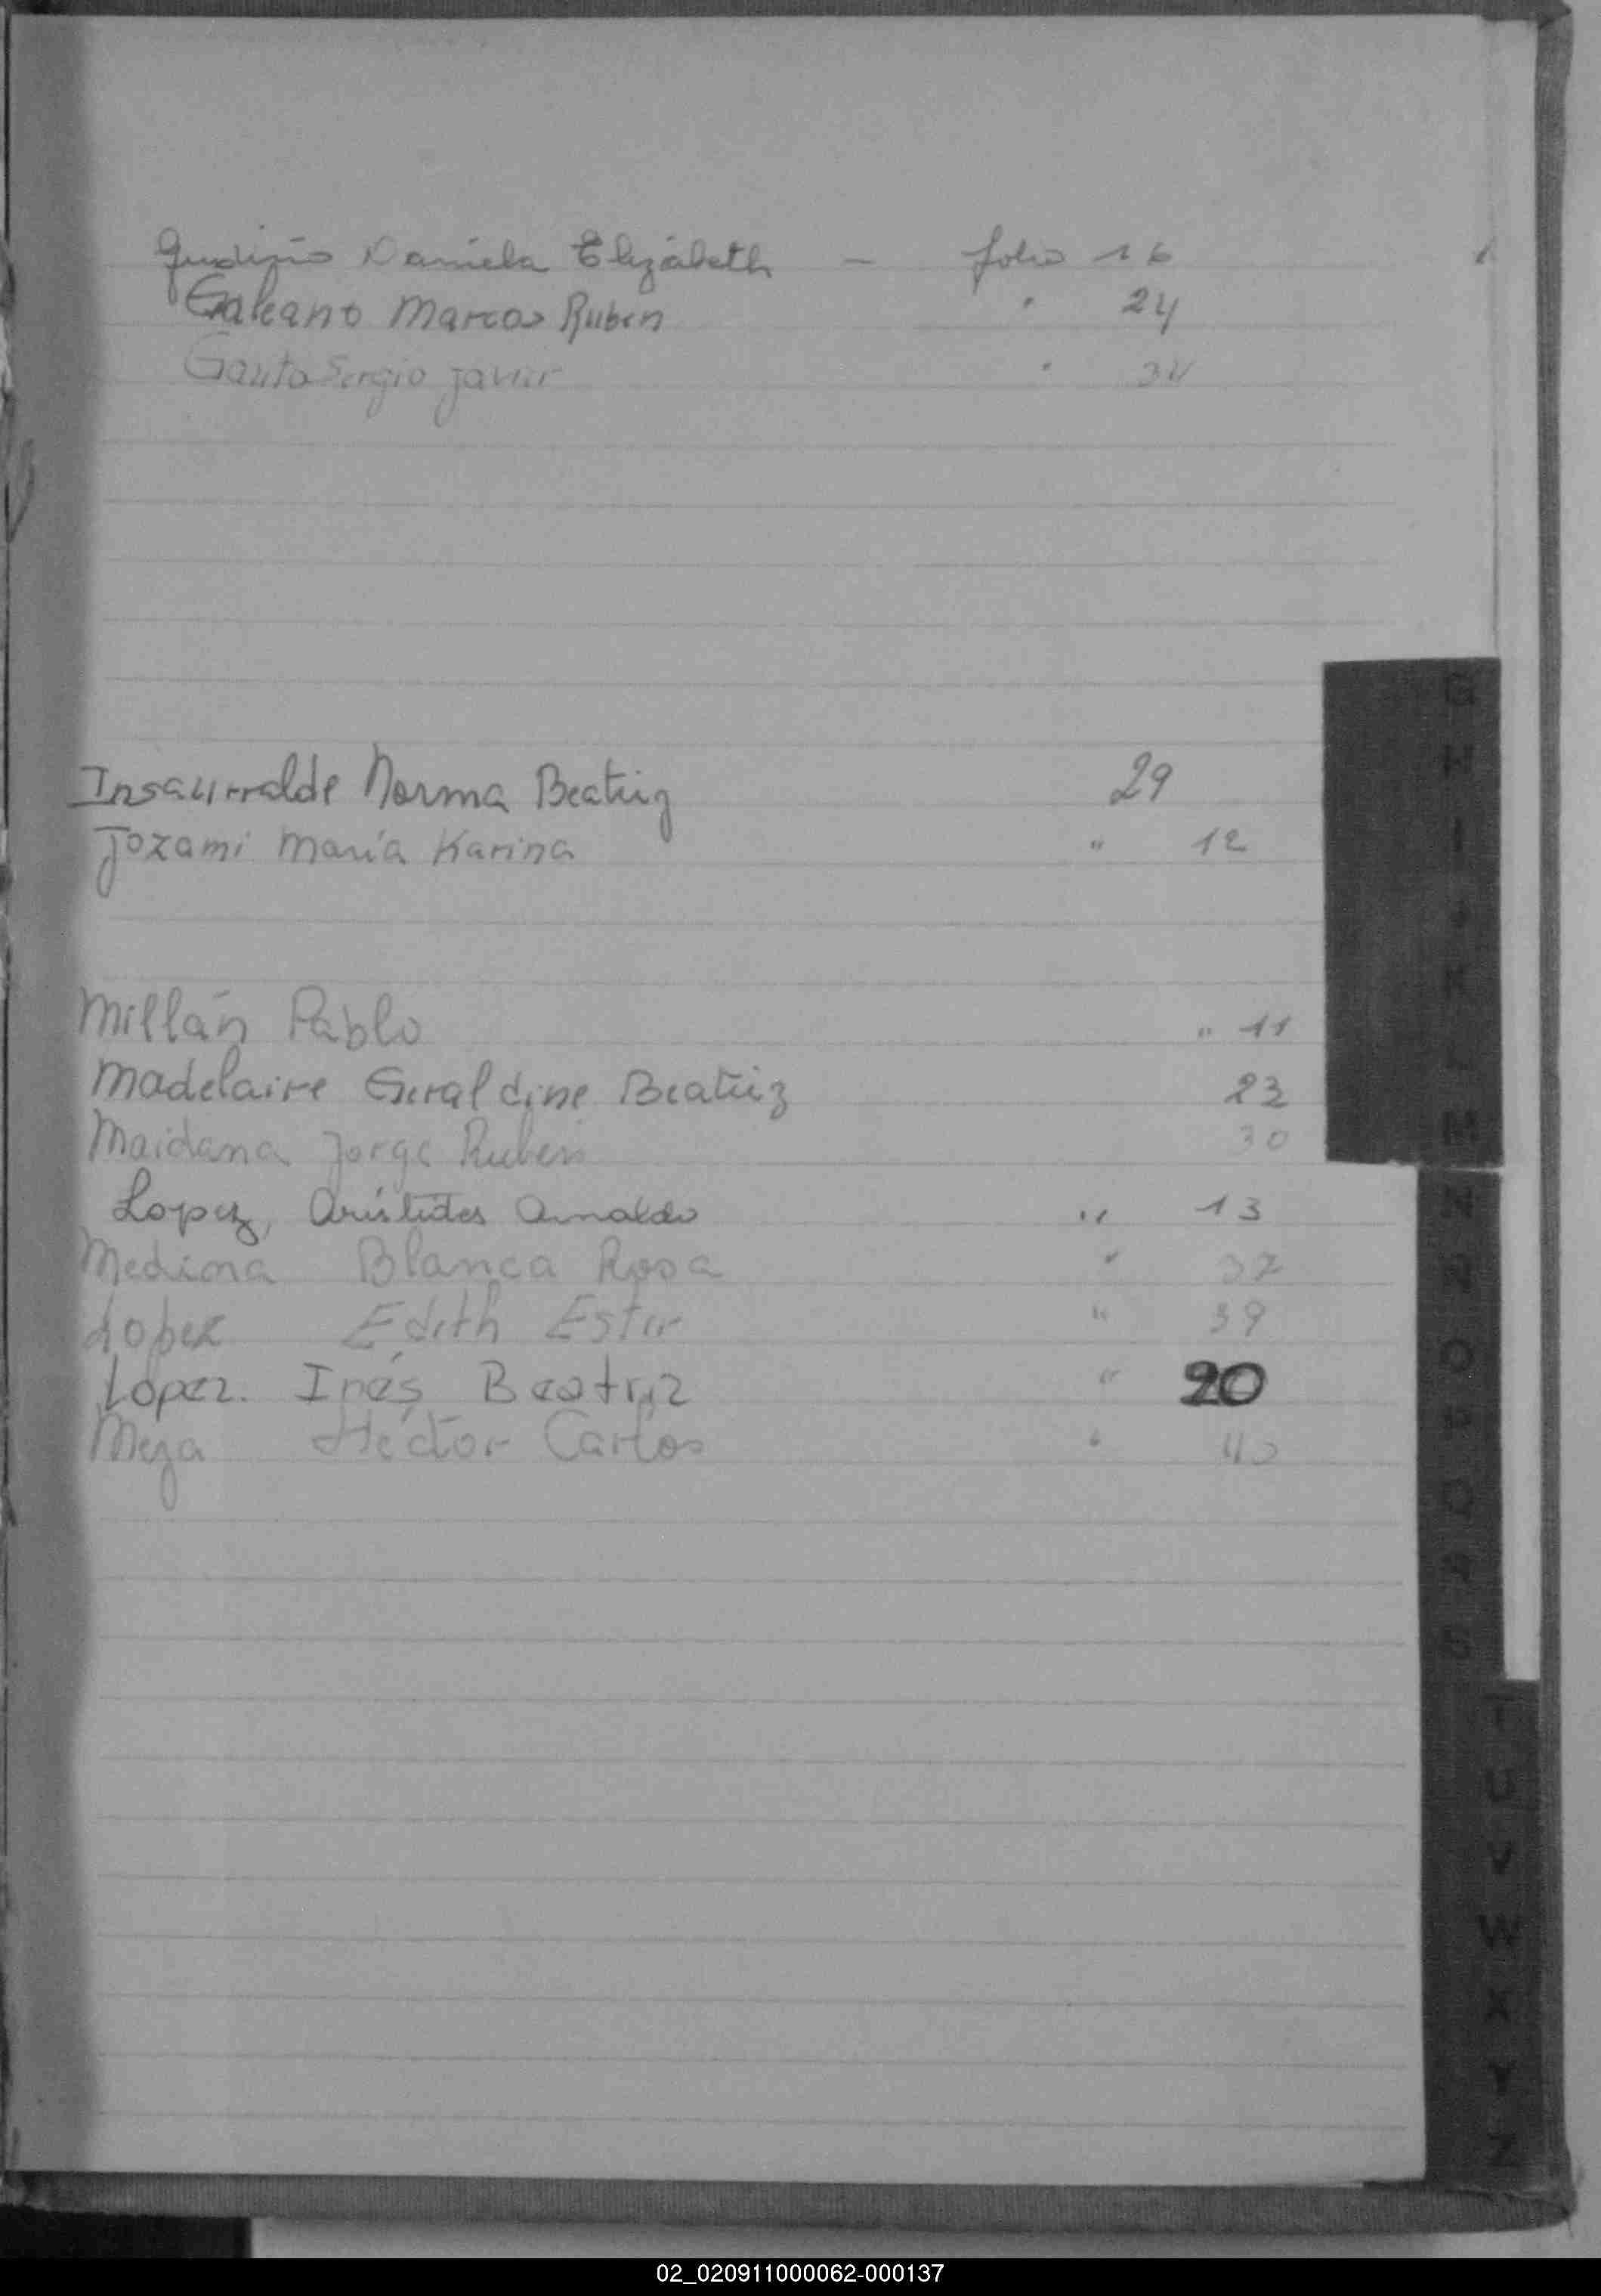 Gudiño Daniela Elizabeth - folio 16
Galeano Marcos Ruben " 24
Gauto Sergio Javier " 34
Insaurralde Norma Beatriz 29
Jozami María Karina " 12
Millán Pablo " 11
Madelaire Geraldine Beatriz 23
Maidana Jorge Ruben 30
Lopez, Arístides Arnaldo " 13
Medina Blanca Rosa " 37
Lopez Edith Ester " 39
Lopez. Inés Beatriz " 20
Meza Héctor Carlos " 40
G
H
I
J
K
L
M
N
Ñ
O
P
Q
R
S
T
U
V
W
X
Y
Z
02_020911000062-000137